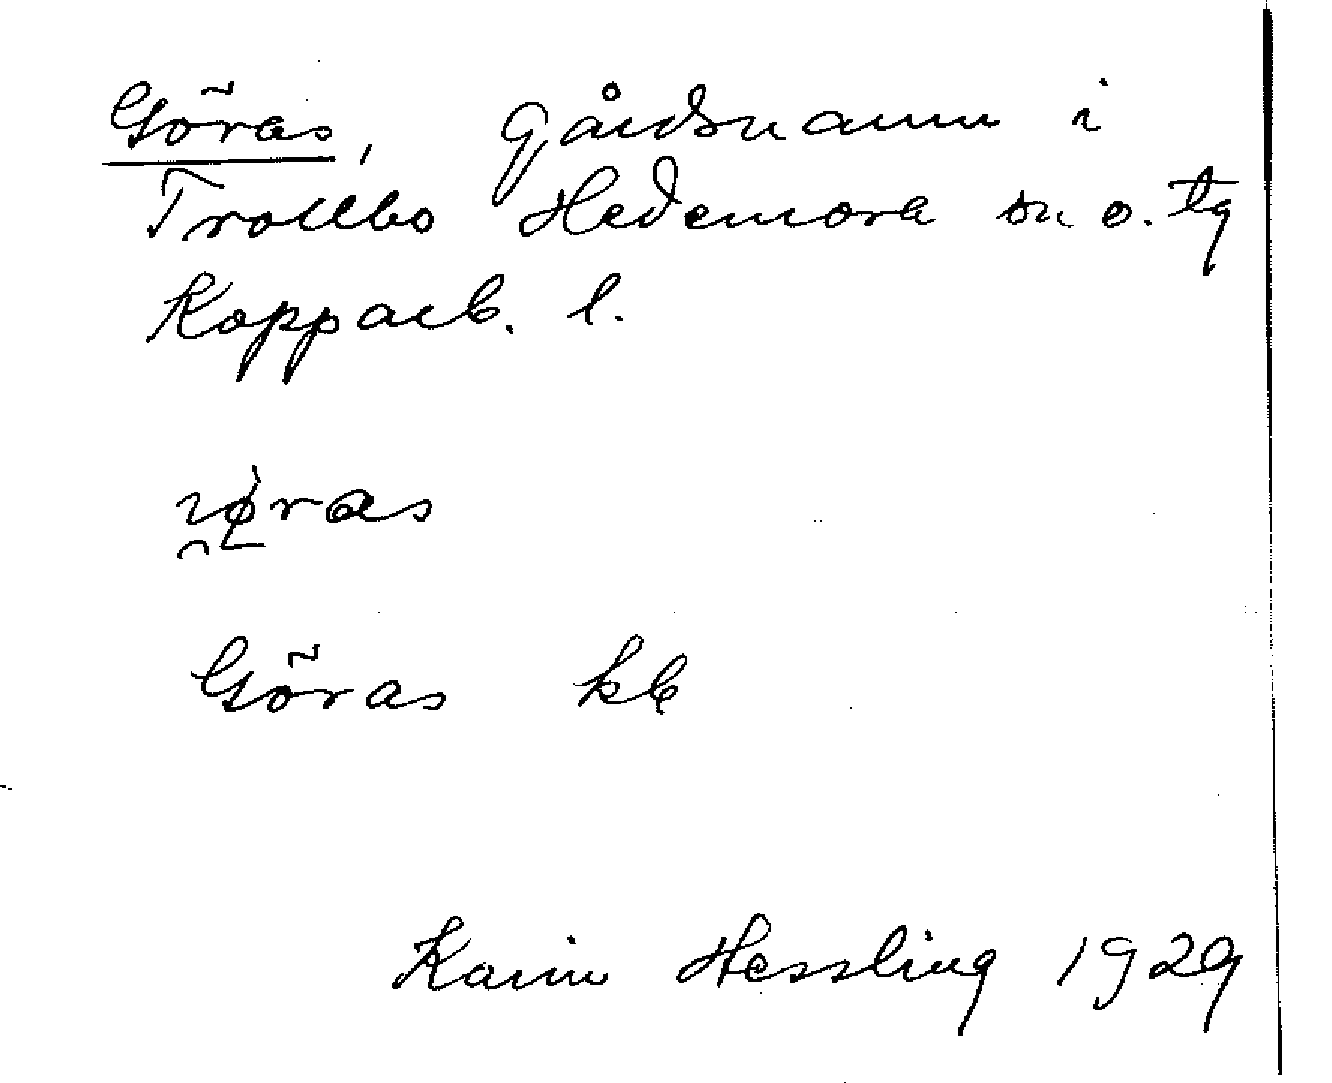 Göras, Gårdsnamn i
Trollbo Hedemora sn o. tg
Kopparb. l.
Göras kb
Karin Hessling 1929